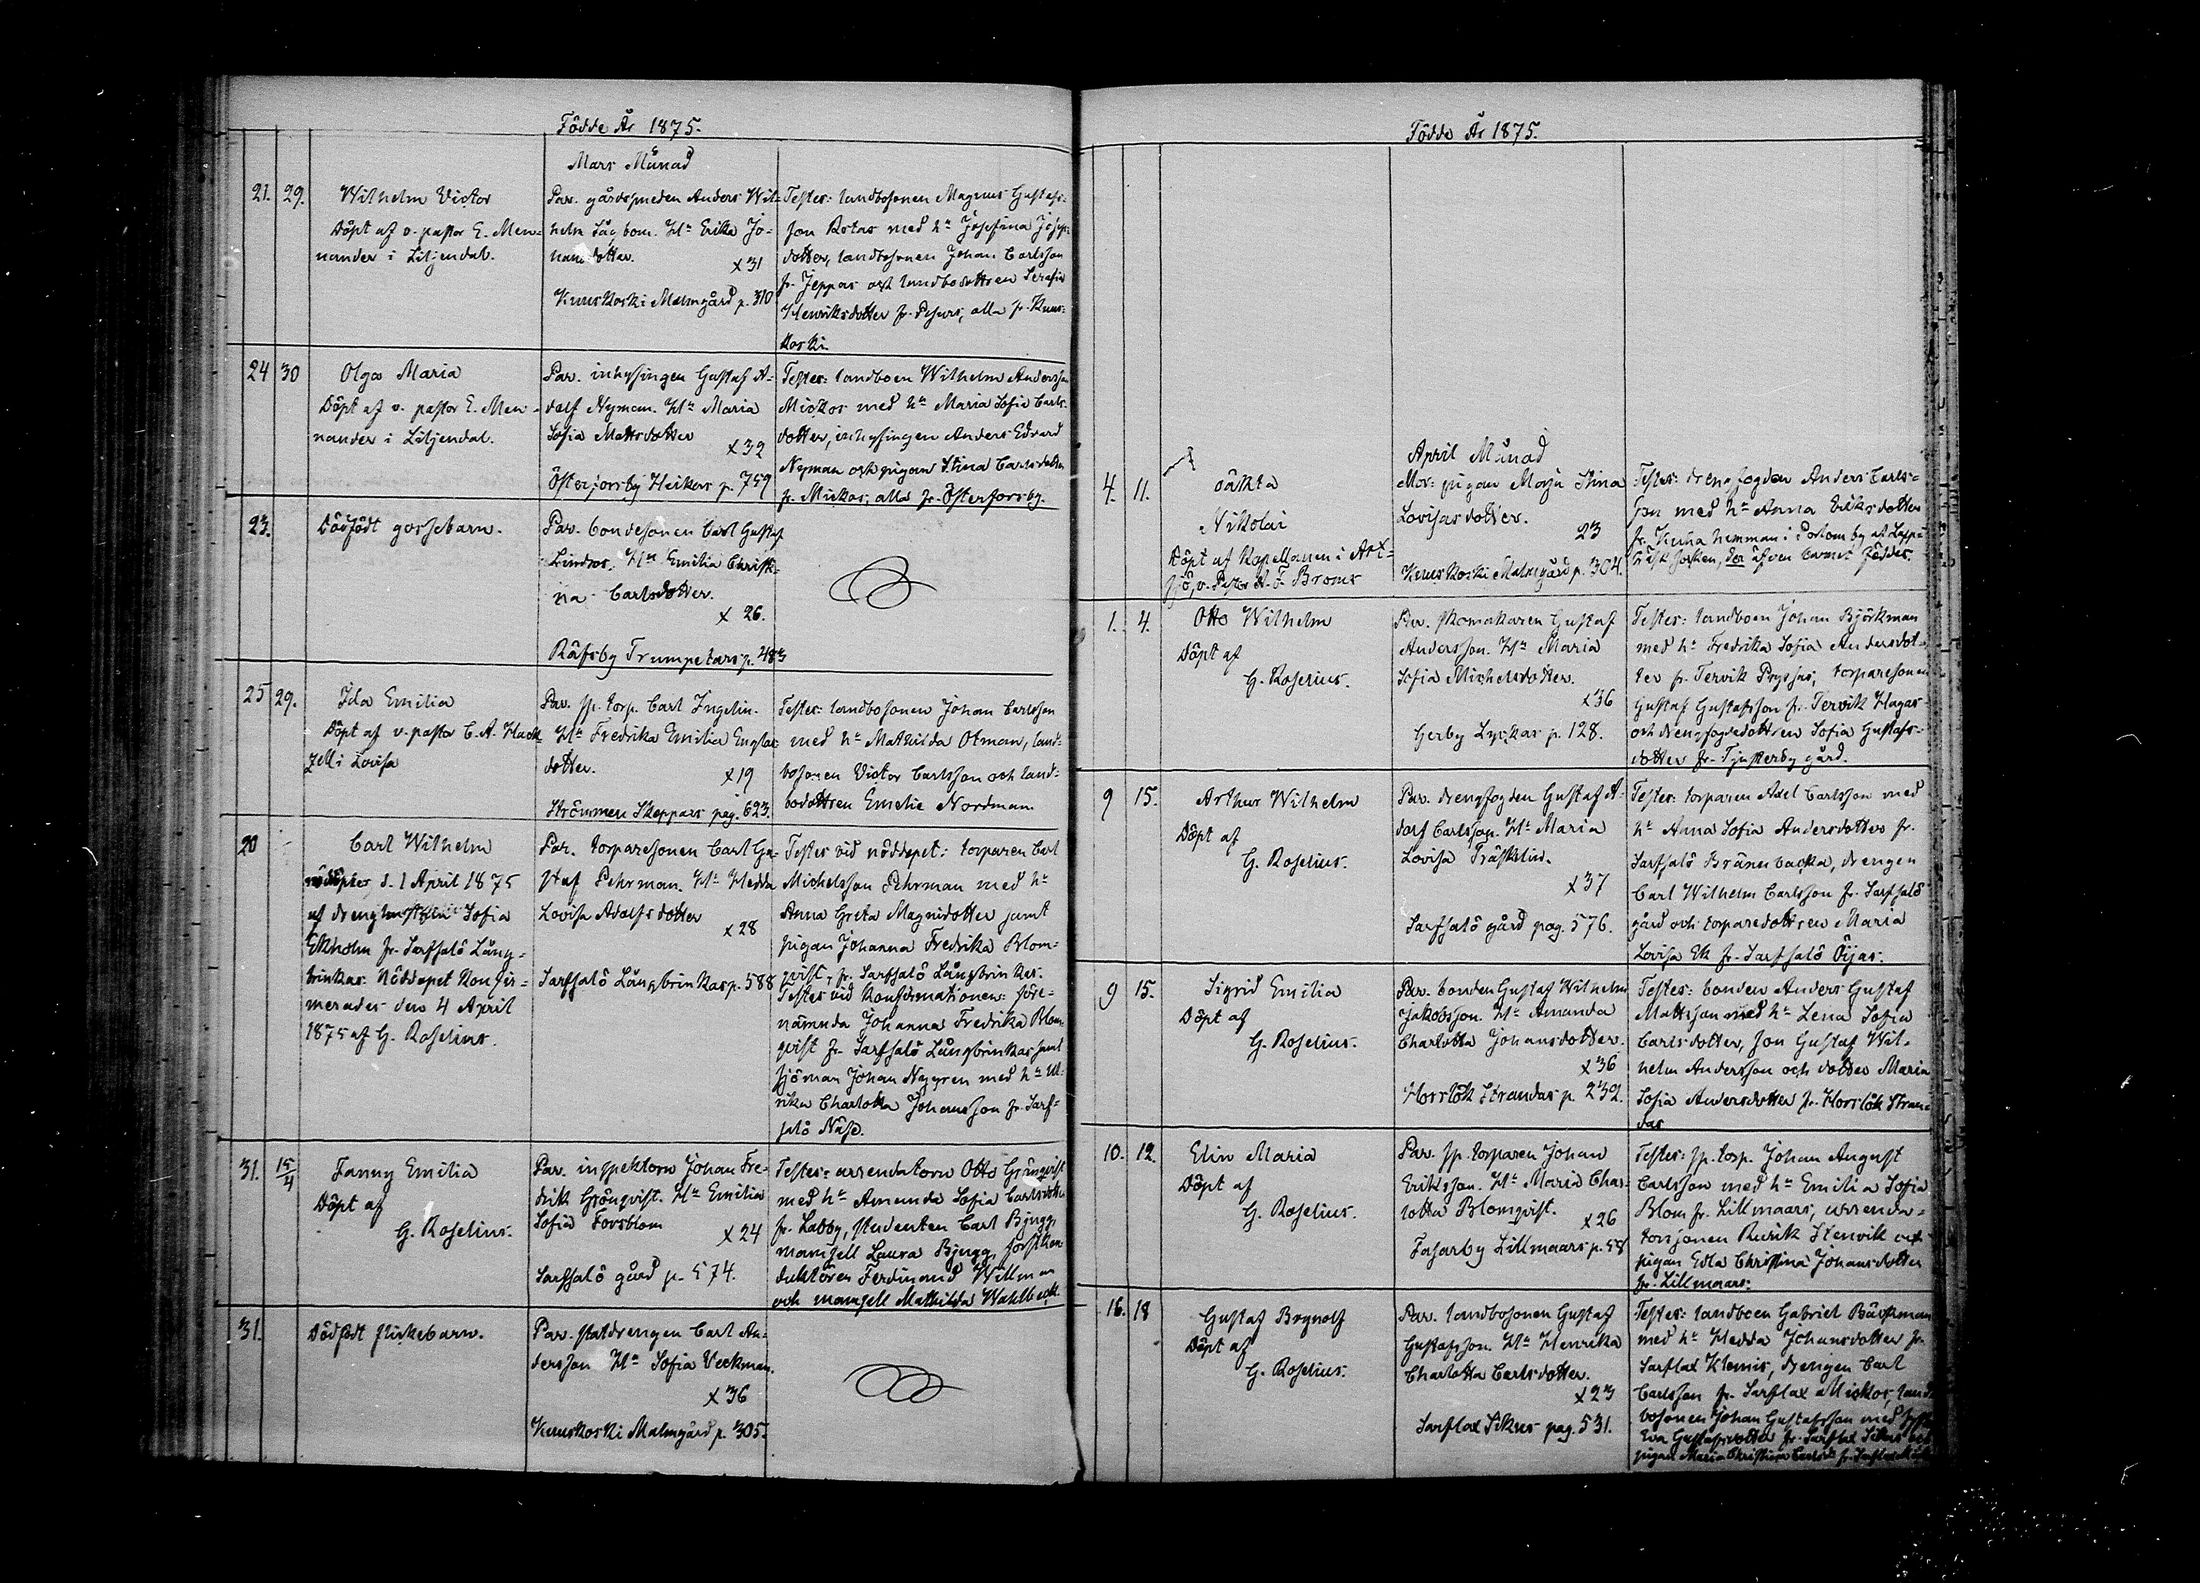 Födde År 1875.
Mars Månad
21. 29. Wilhelm Victor
Döpt af v. pastor E. Men-
nander i Liljendal.
Par. gårdssmeden Anders Wil-
helm Sågbom. H:n Erika Jo-
hansdotter.
x 31
Kuuskoski Malmgård p. 310
Testes: landbosonen Magnus Gustafs-
son Rotas med h:n Josefina Josefs-
dotter, landbosonen Johan Carlsson
fr. Jeppas och landbodottren Serafia
Henriksdotter fr. alla fr. Kuus-
koski.
24 30 Olga Maria
Döpt af v. pastor E. Men-
nander i Liljendal.
Par. inhysingen Gustaf A-
dolf Nyman. H:n Maria
Sofia Mattsdotter
x 32
Österforsby Heikas p. 759
Testes: landboen Wilhelm Andersson
Mickos med h:n Maria Sofia Carls-
dotter, inhysingen Anders Edvard
Nyman och pigan Stina Carlsdotter
fr. Mickos, alla fr. Österforsby.
23. Dödfödt gossebarn.
Par. bondesonen Carl Gustaf
Lindros. H:n Emilia Christi-
na Carlsdotter.
x 26.
Räfsby Trumpetars p. 483
25 29. Ida Emilia
Döpt af v. pastor C. A. Hack-
zell i Lovisa
Par. sp. torp. Carl Ingelin.
H:n Fredrika Emilia Gustafs-
dotter.
x 19
Strömmen Skeppars pag. 623.
Testes: landbosonen Johan Carlsson
med h:n Mathilda Otman, land-
bosonen Victor Carlsson och land-
bodottren Emelie Nordman.
20 Carl Wilhelm
nöddöptes d. 1 April 1875
af Sofia
Ekholm fr. Sarfsalö Lång-
brinkas. Nöddopet konfir-
merades den 4 April
1875 af G. Roselius.
Par. torparesonen Carl Gu-
staf Pehrman. H:n Hedda
Lovisa Adolfsdotter
x 28
Sarfsalö Långbrinkas p. 588
Testes vid nöddopet: torparen Carl
Michelsson Pehrman med h:n
Anna Greta Magnidotter samt
pigan Johanna Fredrika Blom-
qvist, fr. Sarfsalö Långbrinkas.
Testes vid konfirmationen: före-
nämnda Johanna Fredrika Blom-
qvist fr. Sarfsalö Långbrinkas samt
sjöman Johan Nygren med h:n Ul-
rika Charlotta Johansson fr. Sarf-
salö Näse.
31. 15/4 Fanny Emilia
Döpt af
G. Roselius.
Par. inspektorn Johan Fre-
drik Grönqvist. H:n Emilia
Sofia Forsblom
x 24
Sarfsalö gård p. 574.
Testes: arrendatorn Otto Grönqvist
med h:n Amanda Sofia Carlsdotter
fr. Labby, studenten Carl Bjugg,
mamsell Laura Bjugg, forstkon-
duktören Ferdinand Willman
och mamsell Mathilda Wahlbeck.
31. Dödfödt flickebarn.
Par. statdrengen Carl An-
dersson H:n Sofia Veckman.
x 36
Kuuskoski Malmgård p. 305.
Födde År 1875.
April Månad
4. 11. oäkta
Nikolai
Döpt af Kapellanen i Art-
sjö, v. Pastor A. F. Broms
Mor: pigan Maja Stina
Lovisasdotter.
23
Kuuskoski Malmgård p. 304.
Testes: drengfogden Anders Carls-
son med h:n Anna Eriksdotter
fr. hemman i Portom by af Lapp-
träsk socken, der äfven barnet föddes.
1. 4. Otto Wilhelm
Döpt af
G. Roselius.
Par. skomakaren Gustaf
Andersson. H:n Maria
Sofia Michelsdotter.
x 36
Gerby Lyckas p. 128.
Testes: landboen Johan Björkman
med h:n Fredrika Sofia Andersdot-
ter fr. Tervik torparesonen
Gustaf Gustafsson fr. Tervik Hagas
och drengfogdedottren Sofia Gustafs-
dotter fr. Tjusterby gård.
9 15. Arthur Wilhelm
Döpt af
G. Roselius.
Par. drengfogden Gustaf A-
dolf Carlsson. H:n Maria
Lovisa Träsklin.
x 37
Sarfsalö gård pag. 576.
Testes: torparen Axel Carlsson med
h:n Anna Sofia Andersdotter fr.
Sarfsalö Brännbacka, drengen
Carl Wilhelm Carlsson fr. Sarfsalö
gård och torparedottren Maria
Lovisa Ek fr. Sarfsalö Öijas.
9 15. Sigrid Emilia
Döpt af
G. Roselius.
Par. bonden Gustaf Wilhelm
Jakobsson. H:n Amanda
Charlotta Johansdotter.
x 36
Horslök Strandas p. 232.
Testes: bonden Anders Gustaf
Mattsson med h:n Lena Sofia
Carlsdotter, son Gustaf Wil-
helm Andersson och dotter Maria
Sofia Andersdotter fr. Horslök Stran-
das
10. 12. Elin Maria
Döpt af
G. Roselius.
Par. sp. torparen Johan
Eriksson. H:n Maria Char-
lotta Blomqvist.
x 26
Fasarby Lillmaars p. 58
Testes: sp. torp. Johan August
Carlsson med h:n Emilia Sofia
Blom fr. Lillmaars, arrenda-
torssonen Rurik Stenvik och
pigan Edla Christina Johansdotter
fr. Lillmaars.
16. 18 Gustaf Brynolf
Döpt af
G. Roselius.
Par. landbosonen Gustaf
Gustafsson. H:n Henrika
Charlotta Carlsdotter.
x 23
Sarflax Sikus pag. 531.
Testes: landboen Gabriel Bäckman
med h:n Hedda Johansdotter fr.
Sarflax Klemis, drengen Carl
Carlsson fr. Sarflax Mickos, land-
bosonen Johan Gustafsson med
Eva Gustafsdotter fr. Sarflax Sikus och
pigan Maria Christina fr. Sarflax